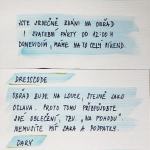 JSTE SRDEČNĚ ZVÁNI NA OBŘAD
I SVATEBNÍ PÁRTY OD 12:00 H
DONEVIDÍM, MÁME NA TO CELÝ VÍKEND.
DRESSCODE
OBŘAD BUDE NA LOUCE, STEJNĚ JAKO
OSLAVA. PROTO TOMU PŘIZPŮSOBTE
SVÉ OBLEČENÍ, TZV. „NA POHODU“
NEMUSÍTE MÍT SAKA A PODPATKY.
DARY